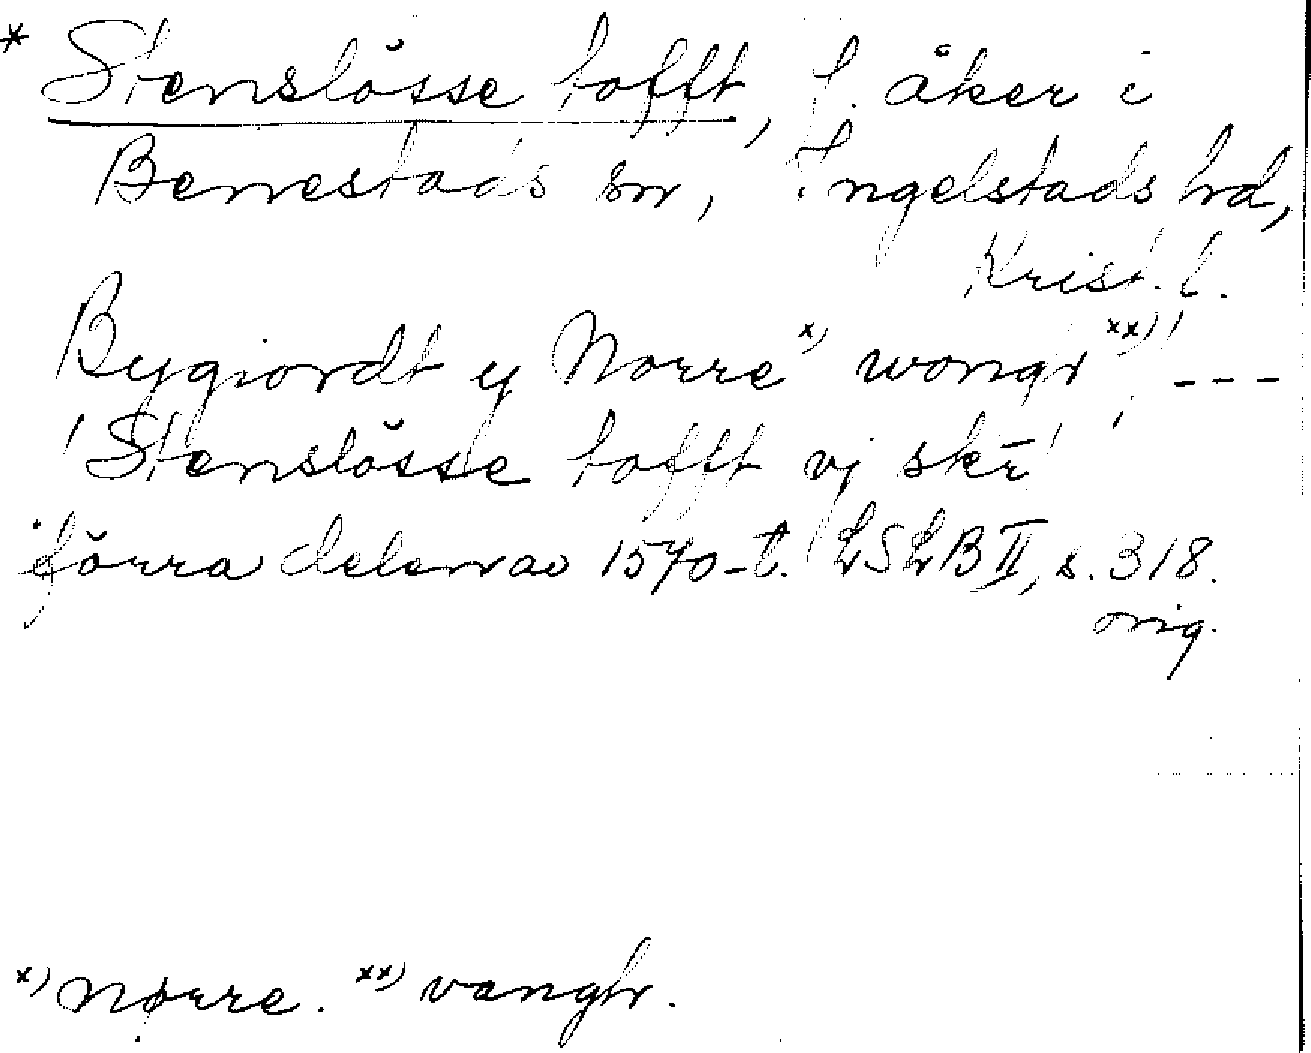 * Stenslösse tofft, f. åker i
Benestads sn, Ingelstads hd,
Krist. l.
Bygiordt y Norre x) wongr xx)', ---
'Stenslösse tofft vj skr̄'
förra delen av 1570-t. LSLB II, s. 318.
orig.
x) nørre. xx) vangh.